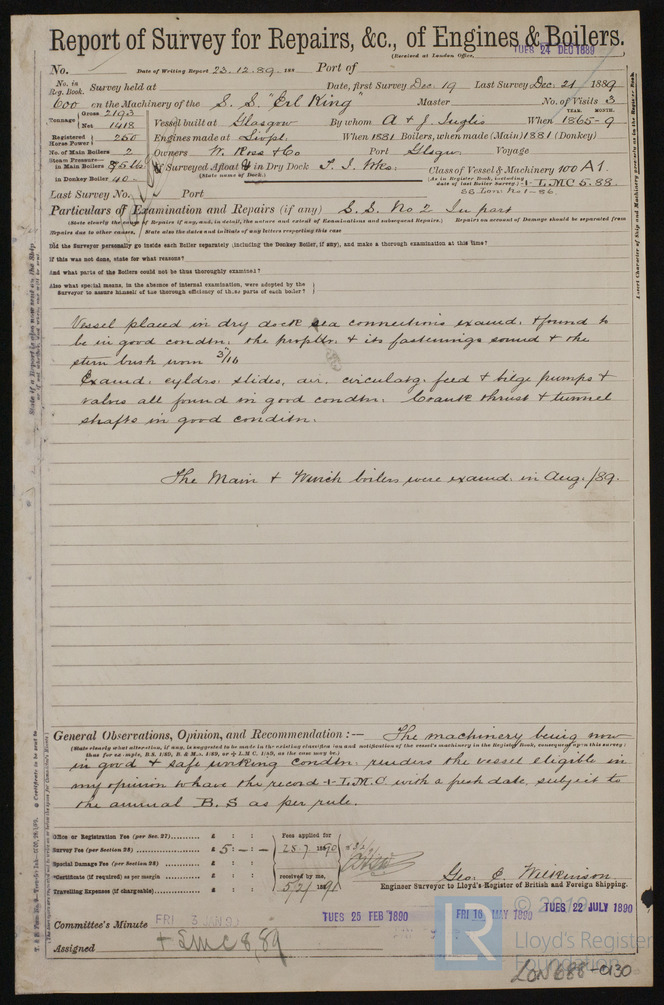 Report of Survey for Repairs, &c., of Engines & Boilers.
(Received at London Office, TUES 24 DEC 1889
No. Date of Writing Report 23.12.89 188 Port of
No. in Reg. Book. Survey held at Date, first Survey Dec. 19 Last Survey Dec. 21 1889
600 on the Machinery of the S. S. "Erl King" Master No. of Visits 3
Tonnage Gross 2193
Net 1418
Vessel built at Glasgow By whom A & J. Inglis When 1865-9
YEAR. MONTH.
Registered Horse Power 250 Engines made at Livpl. When 1881 Boilers, when made (Main) 1881 (Donkey)
No. of Main Boilers 2 Owners W. Ross & Co Port Glsgw. Voyage
Steam Pressure in Main Boilers 85 lbs If Surveyed Afloat or in Dry Dock T. I. Wks. Class of Vessel & Machinery 100 A1.
(State name of Dock.) (As in Register Book, including date of last Boiler Survey.) + L.MC 5.88.
in Donkey Boiler 40
SS. Lon. No 1-86.
Last Survey No. Port
Particulars of Examination and Repairs (if any) S. S. No 2 In part
(State clearly the cause of Repairs if any, and, in detail, the nature and extent of Examinations and subsequent Repairs.) Repairs on account of Damage should be separated from
Repairs due to other causes. State also the dates and initials of any letters respecting this case
Did the Surveyor personally go inside each Boiler separately (including the Donkey Boiler, if any), and make a thorough examination at this time?
If this was not done, state for what reasons?
And what parts of the Boilers could not be thus thoroughly examined?
Also what special means, in the absence of internal examination, were adopted by the
Surveyor to assure himself of the thorough efficiency of those parts of each boiler?
Vessel placed in dry dock sea connections examd. & found to
be in good condtn. the propllr. & its fastenings sound & the
stern bush worn 3/16
Examd. cyldrs. slides, air, circulatg. feed & bilge pumps &
valves all found in good condtn: Crank thrust & tunnel
shafts in good conditn.
The Main & Winch boilers were examd. in Aug. /89.
General Observations, Opinion, and Recommendation :— The machinery being now
(State clearly what alteration, if any, is suggested to be made in the existing classification and notification of the vessel's machinery in the Register Book, consequent upon this survey;
thus for example, B.S. 1/89, B. & M.S. 1/89, or + L.M.C. 1/89, as the case may be.)
in good & safe working condtn. renders the vessel eligible in
my opinion to have the record + L.M.C. with a fresh date, subject to
the annual B. S as per rule.
Office or Registration Fee (per Sec. 27) £ : : Fees applied for
Survey Fee (per Section 28) £ 5 : - : - 28.7 1890
Special Damage Fee (per Section 28) £ : :
*Certificate (if required) as per margin £ : : received by me,
Travelling Expenses (if chargeable) £ : :
Geo. E. Wilkinson
Engineer Surveyor to Lloyd's Register of British and Foreign Shipping.
Committee's Minute FRI 3 JAN 90 TUES 25 FEB 1890 FRI 16 MAY 1890 TUES 22 JULY 1890
Assigned + LMC 8,89
Lloyd's Register
Foundation
LR
LON 688-0130